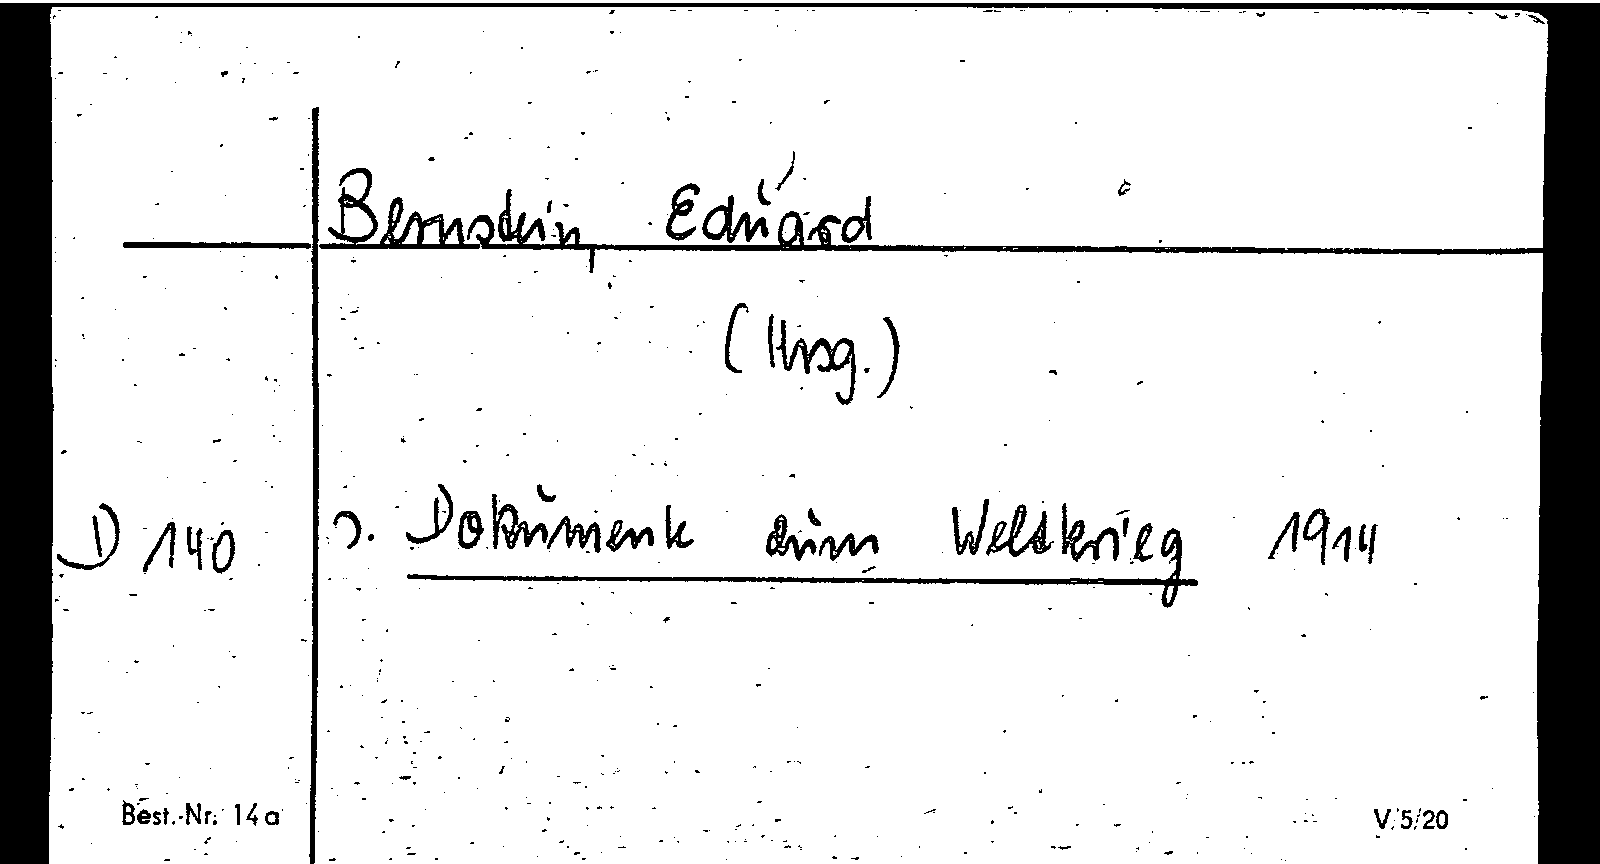 Bernstein, Eduard
(Hrsg.)
D 140 s. Dokumente zum Weltkrieg 1914
Best.-Nr. 14a V/5/20